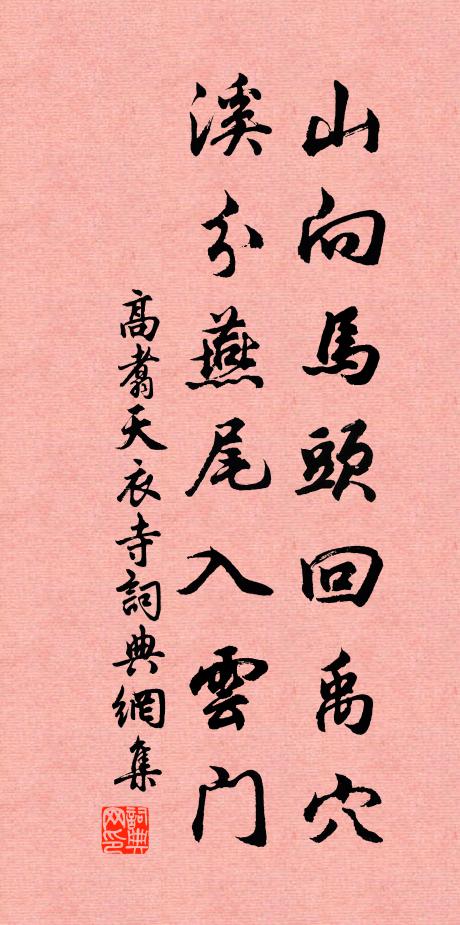 山向馬頭回禹穴
溪分燕尾入雲門
高翥天衣寺詞典網集
詞典网印